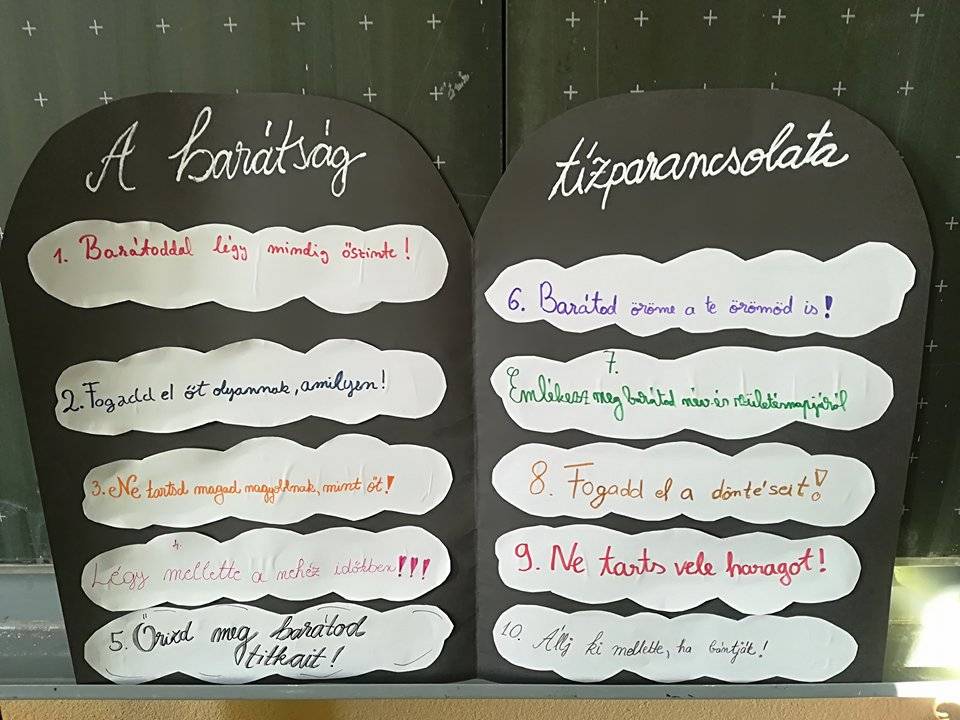 A barátság
1. Barátoddal légy mindig őszinte!
2. Fogadd el őt olyannak, amilyen!
3. Ne tartsd magad nagyobbnak, mint őt!
4.
Légy mellette a nehéz időkben!!!
5. Őrizd meg barátod
titkait!
tízparancsolata
6. Barátod öröme a te örömöd is!
7.
Emlékezz meg barátod név- és születésnapjáról
8. Fogadd el a döntéseit!
9. Ne tarts vele haragot!
10. Állj ki mellette, ha bántják!